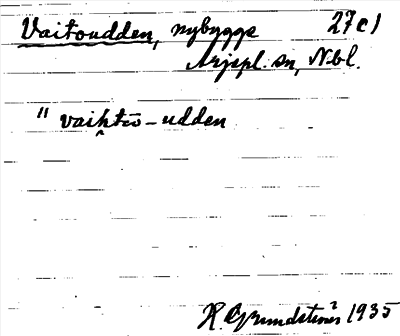 Vaitoudden, nybygge 27c1
Arjepl. sn, Nbl.
" vaiḫtō-udden
H. Grundström 1935